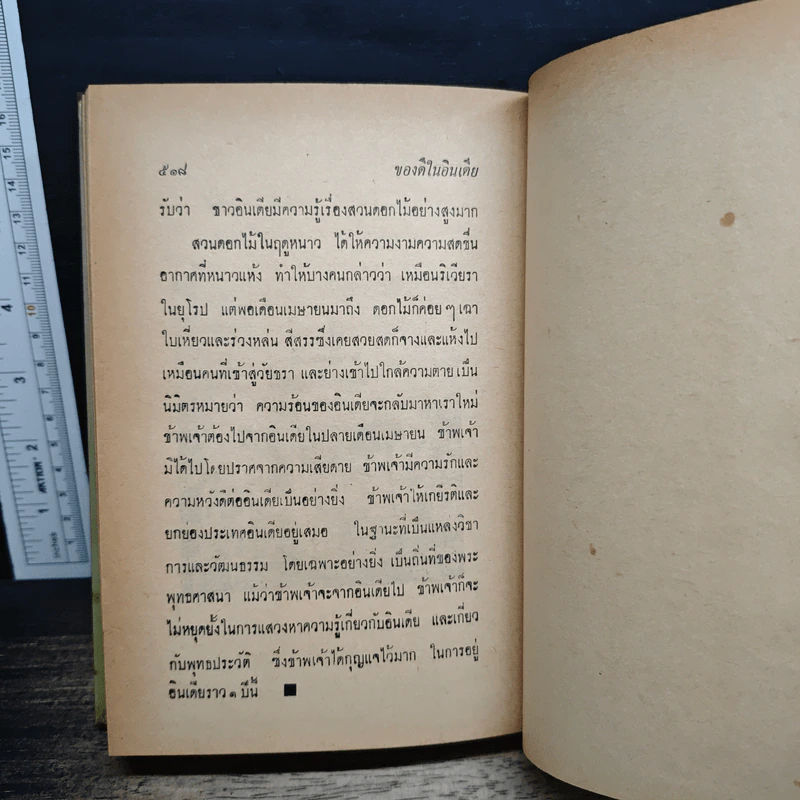 ๕๑๘ ของดีในอินเดีย
รับว่า ชาวอินเดียมีความรู้เรื่องสวนดอกไม้อย่างสูงมาก
สวนดอกไม้ในฤดูหนาว ได้ให้ความงามความสดชื่น
อากาศที่หนาวแห้ง ทำให้บางคนกล่าวว่า เหมือนริเวียรา
ในยุโรป แต่พอเดือนเมษายนมาถึง ดอกไม้ก็ค่อย ๆ เฉา
ใบเหี่ยวและร่วงหล่น สีสรรซึ่งเคยสวยสดก็จางและแห้งไป
เหมือนคนที่เข้าสู่วัยชรา และย่างเข้าไปใกล้ความตาย เป็น
นิมิตรหมายว่า ความร้อนของอินเดียจะกลับมาหาเราใหม่
ข้าพเจ้าต้องไปจากอินเดียในปลายเดือนเมษายน ข้าพเจ้า
มิได้ไปโดยปราศจากความเสียดาย ข้าพเจ้ามีความรักและ
ความหวังดีต่ออินเดียเป็นอย่างยิ่ง ข้าพเจ้าให้เกียรติและ
ยกย่องประเทศอินเดียอยู่เสมอ ในฐานะที่เป็นแหล่งวิชา
การและวัฒนธรรม โดยเฉพาะอย่างยิ่ง เป็นถิ่นที่ของพระ
พุทธศาสนา แม้ว่าข้าพเจ้าจะจากอินเดียไป ข้าพเจ้าก็จะ
ไม่หยุดยั้งในการแสวงหาความรู้เกี่ยวกับอินเดีย และเกี่ยว
กับพุทธประวัติ ซึ่งข้าพเจ้าได้กุญแจไว้มาก ในการอยู่
อินเดียราว ๑ ปีนี้ ■
16
15
14
13
11
10
4
3
2
1
inches